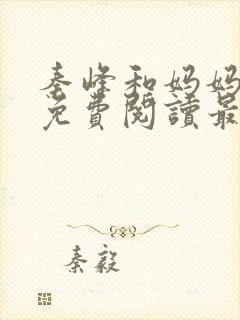 秦峰和妈妈
免費閱讀最
秦毅